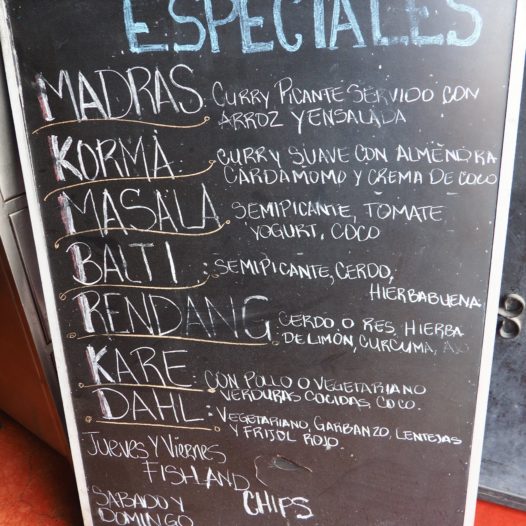 ESPECIALES
MADRAS: CURRY PICANTE SERVIDO CON
ARROZ Y ENSALADA
KORMA CURRY SUAVE CON ALMENDRA
CARDAMOMO Y CREMA DE COCO
MASALA SEMIPICANTE, TOMATE
YOGURT, COCO
BALTI : SEMIPICANTE, CERDO,
HIERBABUENA
RENDANG CERDO O RES, HIERBA
DE LIMÓN, CURCUMA,
KARE CON POLLO O VEGETARIANO
VERDURAS COCIDAS, COCO.
DAHL: VEGETARIANO, GARBANZO, LENTEJAS
Y FRIJOL ROJO
JUEVES Y VIERNES
FISH AND
CHIPS
SABADO Y
DOMINGO